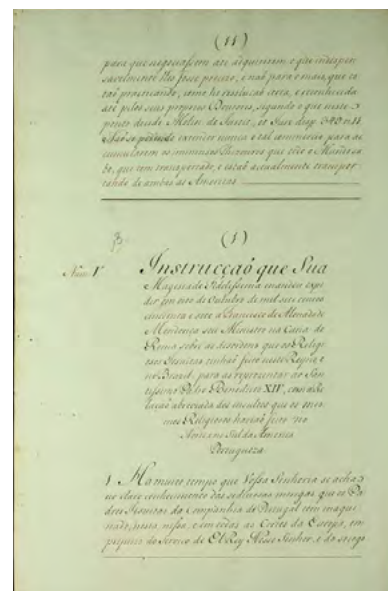 (11)
para que negociassem até adquirirem o que indispen-
savelmente lhes fosse preciso, e não para o mais, que es-
tão praticando, como he resolução certa, e reconhecida
até pelos seus proprios Doutores, segundo o que neste
ponto decide
não se podendo exercitar nunca tal commercio para ac-
cumularem os immensos Thesouros que vio o Mundo to-
do, que tem transportado, e estão actualmente transpor-
tando de ambas as Americas
(1)
Num. Iº
Instrucçaõ que Sua
Magestade Fidelissima mandou expe-
dir em oito de Outubro de mil sete centos
cincoenta e sete a Francisco de Almada de
Mendonça seu Ministro na Curia de
Roma sobre as desordens que os Religi-
osos Jesuitas tinhaõ feito neste Reyno e
no Brazil, para as representar ao San-
tissimo Padre Benedicto XIV, com a Re-
laçaõ abreviada dos insultos que os mes-
mos Religiosos haviaõ feito no
Norte e no Sul da America
Portugueza
1 Ha muito tempo que Vossa Senhoria se acha
no claro conhecimento das intrigas que os Pa-
dres Jesuitas da Companhia de Portugal tem maqui-
nado, nessa e em todas as Cortes da Europa, em
prejuizo do serviço de El Rey Nosso Senhor, e do socego